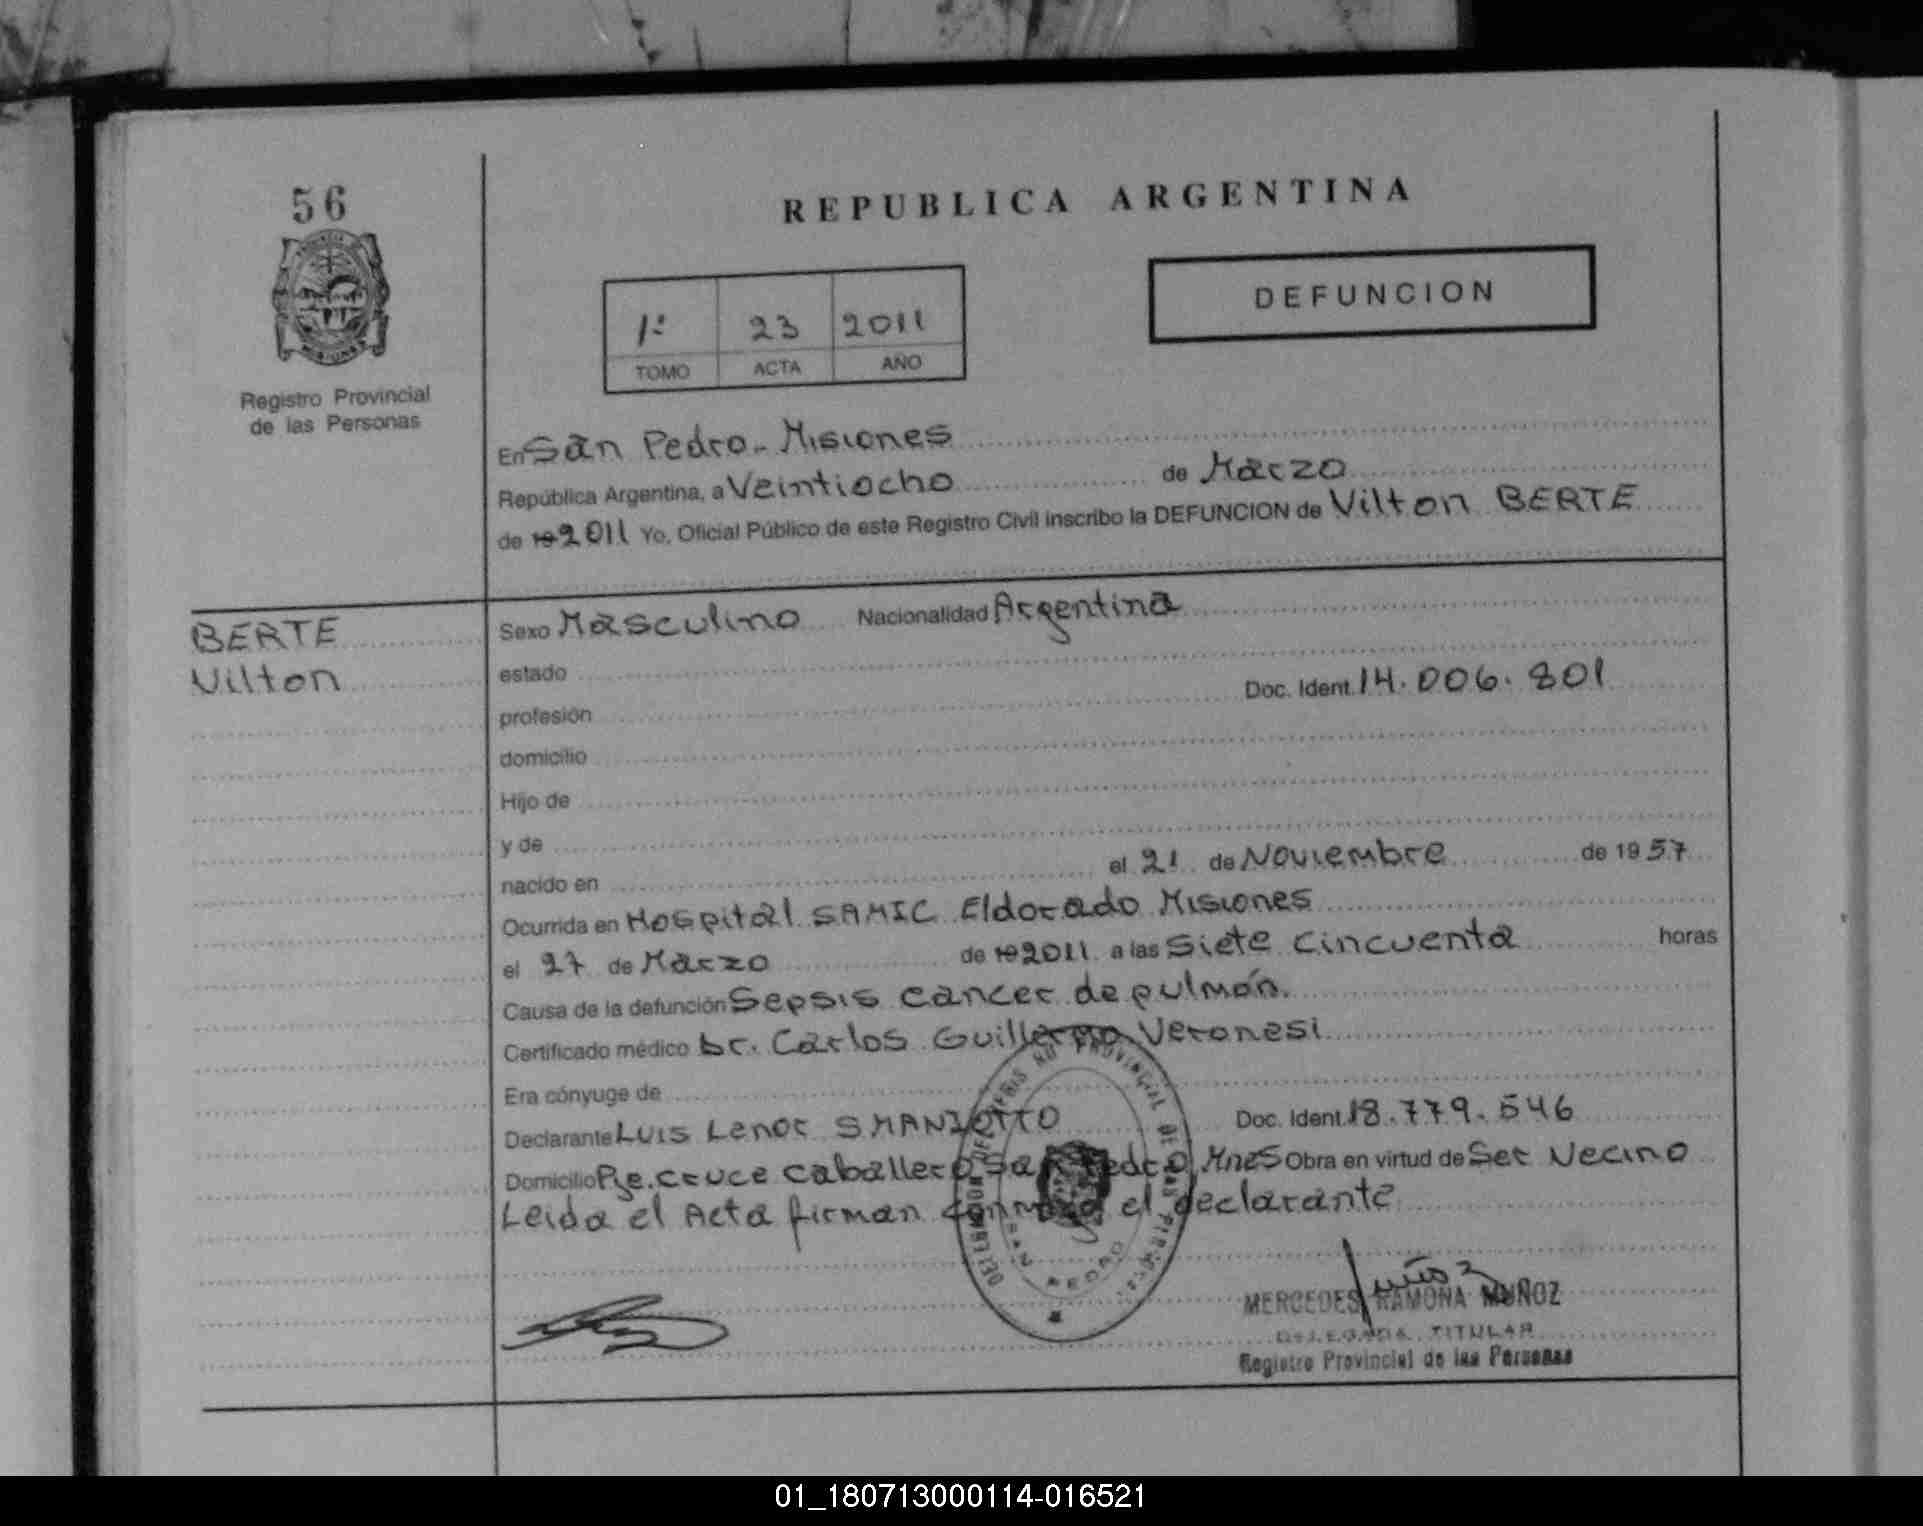 56
REPUBLICA ARGENTINA
DEFUNCION
1º 23 2011
TOMO ACTA AÑO
Registro Provincial
de las Personas
En San Pedro - Misiones
República Argentina, a Veintiocho de Marzo
de 19 2011 Yo, Oficial Público de este Registro Civil inscribo la DEFUNCION de Vilton BERTE
BERTE
Vilton
Sexo Masculino Nacionalidad Argentina
estado
Doc. Ident. 14.006.801
profesión
domicilio
Hijo de
y de
nacido en el 21 de Noviembre de 1957
Ocurrida en Hospital SAMIC Eldorado Misiones
el 27 de Marzo de 19 2011 a las Siete cincuenta horas
Causa de la defunción Sepsis cancer de pulmón.
Certificado médico Dr. Carlos Guillermo Veronesi
Era cónyuge de
Declarante Luis Lenor SMANIOTTO Doc. Ident. 18.779.546
Domicilio Pje. Cruce Caballero San Pedro Mnes Obra en virtud de Ser Vecino
Leida el Acta firman conmigo el declarante
DELEGACION DEL REGISTRO PROVINCIAL DE LAS PERSONAS
SAN PEDRO
MERCEDES RAMONA MUÑOZ
DELEGADA TITULAR
Registro Provincial de las Personas
01_180713000114-016521